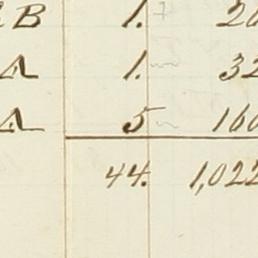 B 1. 20
A 1. 32
A 5 160
44. 1,022